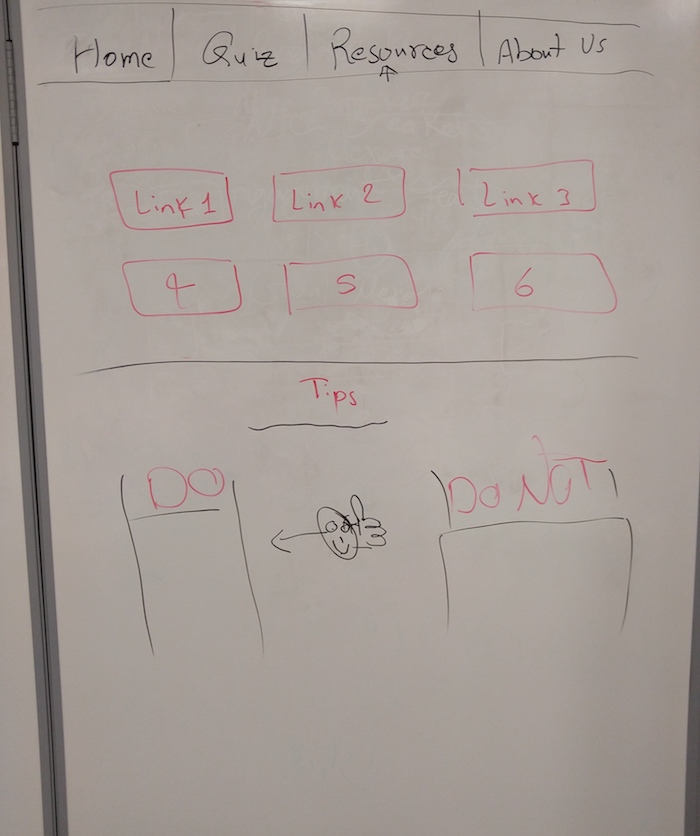 Home Quiz Resources About Us
Link 1 Link 2 Link 3
4 5 6
Tips
DO DO NOT